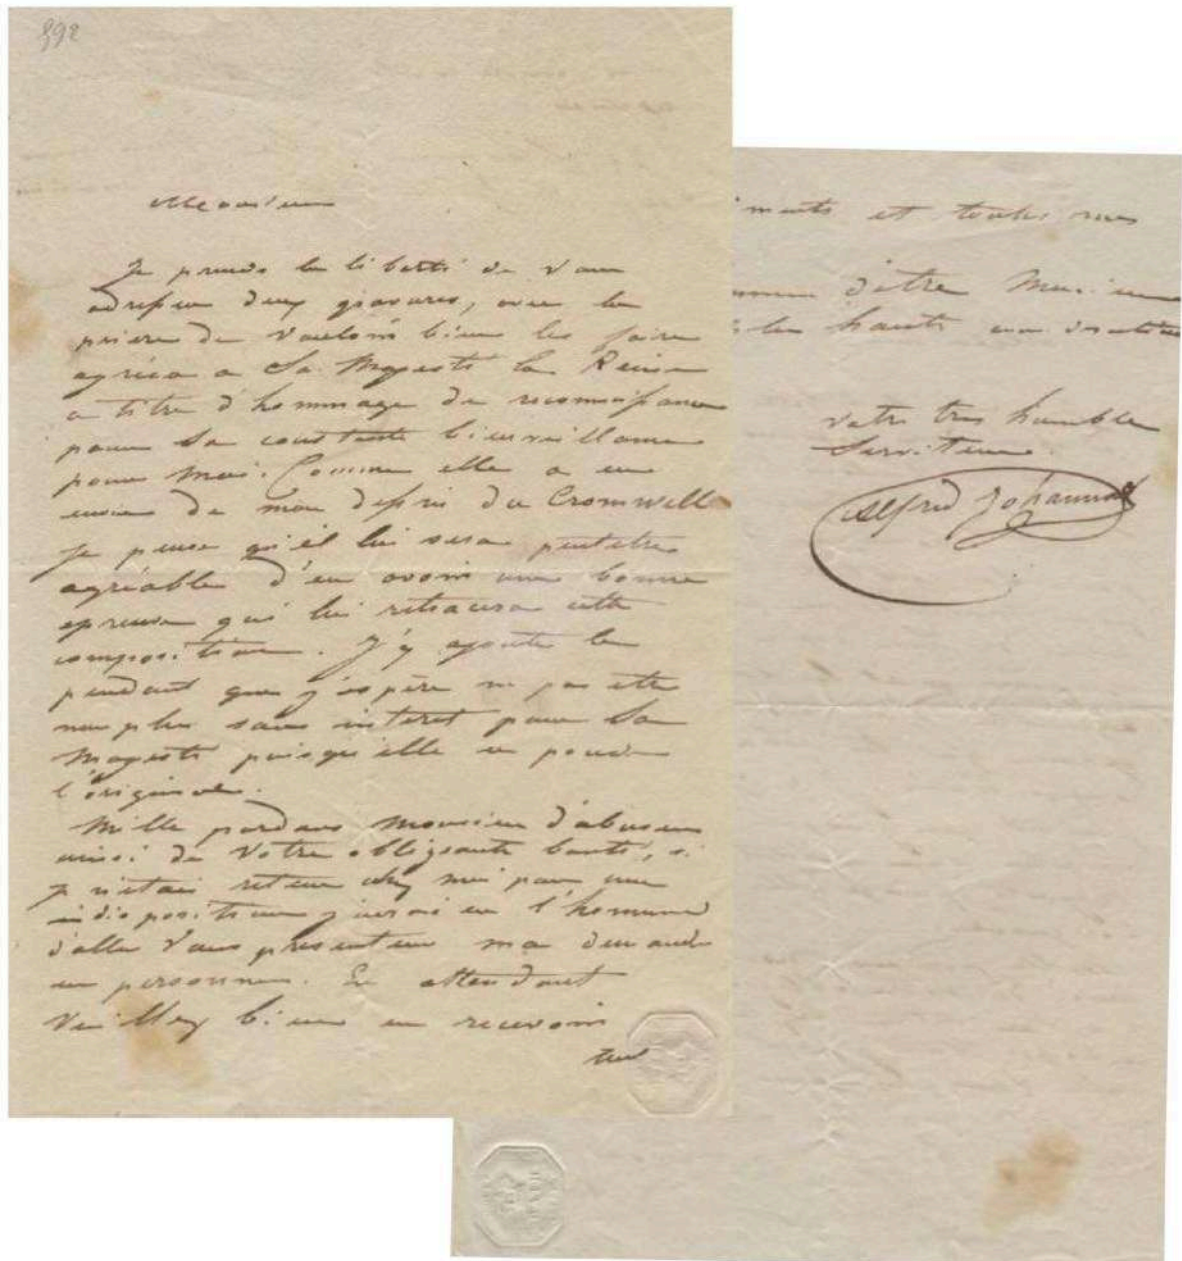 392
Monsieur
Je prends la liberté de vous
adresser deux gravures, avec la
priere de vouloir bien les faire
agréer a Sa Majesté la Reine
a titre d'hommage de reconnaissance
pour sa constante bienveillance
pour moi. Comme elle a eu
envie de mon dessin du Cromwell
je pense qu'il lui sera peutetre
agréable d'en avoir une bonne
epreuve qui lui retracera cette
composition. J'y ajoute le
pendant que j'espère ne pas etre
non plus sans interet pour Sa
Majesté puisqu'elle en possede
l'original.
Mille pardons Monsieur d'abuser
ainsi de votre obligeante bonté, si
je n'etais retenu chez moi par une
indisposition j'aurais eu l'honneur
d'aller vous presenter ma demande
en personne. En attendant
Veuillez bien en recevoir
iments et toutes mes
d'etre Monsieur
la haute consideration
votre tres humble
Serviteur
Alfred Johannot